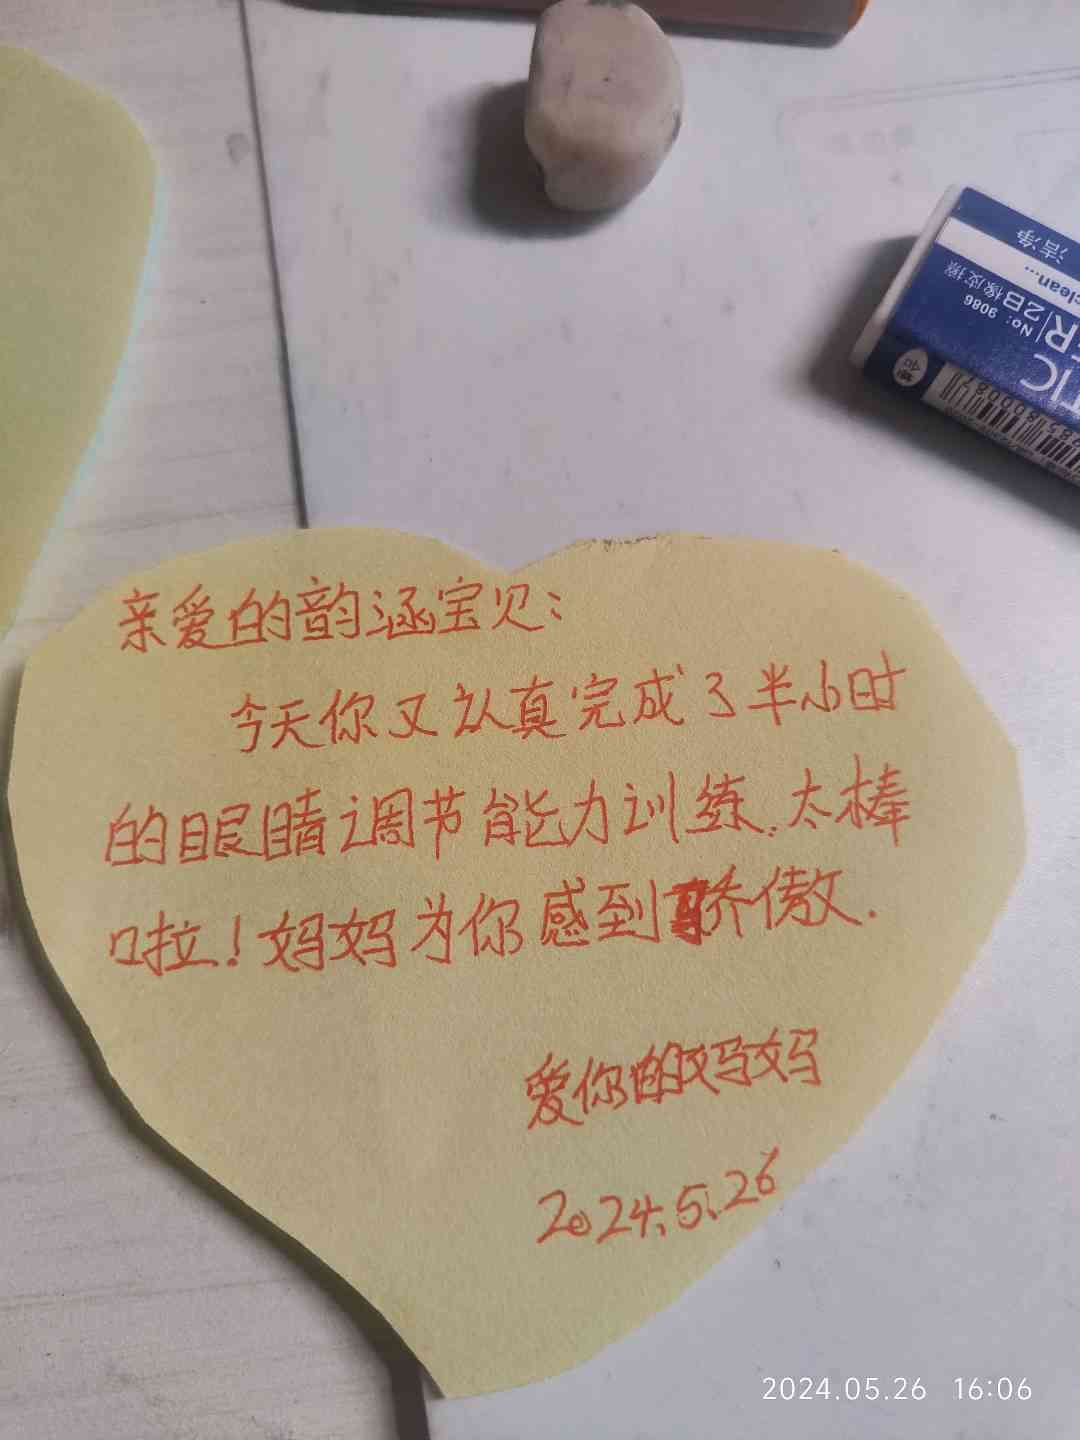 洁净
clean...
2B橡皮擦
No: 9086
亲爱的韵涵宝贝:
今天你又认真完成了半小时
的眼睛调节能力训练.太棒
啦!妈妈为你感到骄傲.
爱你的妈妈
2024.5.26
2024.05.26 16:06